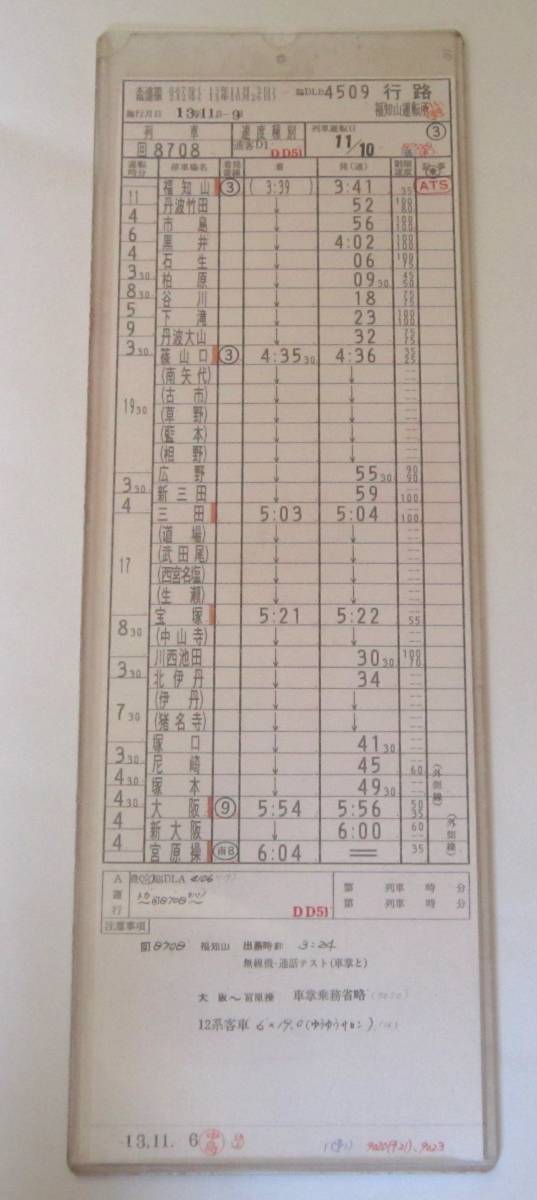 臨DLB4509 行路
施行月日 13年11月-9日 福知山運転所
列車 速度種別 列車運転日 ③
回8708 通客D1 DD51 11/10
運転時分 停車場名 着発番線 着 発(通) 制限速度 記事
福知山 ③ (3:39) 3:41 35 ATS
11 丹波竹田 ↓ 52 100 80
4 市島 ↓ 56 100 100
6 黒井 ↓ 4:02 100 100
4 石生 ↓ 06 100 75
3 30 柏原 ↓ 09 30 45 50
8 30 谷川 ↓ 18 75 75
5 下滝 ↓ 23 100 100
9 丹波大山 ↓ 32 75 75
3 30 篠山口 ③ 4:35 30 4:36 35 25
(南矢代) ↓ ↓
(古市) ↓ ↓
19 30 (草野) ↓ ↓
(藍本) ↓ ↓
(相野) ↓ ↓
広野 ↓ 55 30 90 90
3 30 新三田 ↓ 59 100
4 三田 5:03 5:04 100
(道場) ↓ ↓
(武田尾) ↓ ↓
17 (西宮名塩) ↓ ↓
(生瀬) ↓ ↓
宝塚 5:21 5:22 55
8 30 (中山寺) ↓ ↓
川西池田 ↓ 30 30 100 70
3 30 北伊丹 ↓ 34
(伊丹) ↓ ↓
7 30 (猪名寺) ↓ ↓
塚口 ↓ 41 30
3 30 尼崎 ↓ 45 60 (外側線)
4 30 塚本 ↓ 49 30
4 30 大阪 ⑨ 5:54 5:56 50 35
4 新大阪 ↓ 6:00 60 (外側線)
4 宮原操 南8 6:04 ＝ 35
A運行 DLA 4106
回8708
DD51
第 列車 時 分
第 列車 時 分
注意事項
回8708 福知山 出務時刻 3:24
無線機・通話テスト(車掌と)
大阪～宮原操 車掌乗務省略
12系客車 6×19.0(ゆうゆうサロン)
13.11. 6 9020(921)、9023